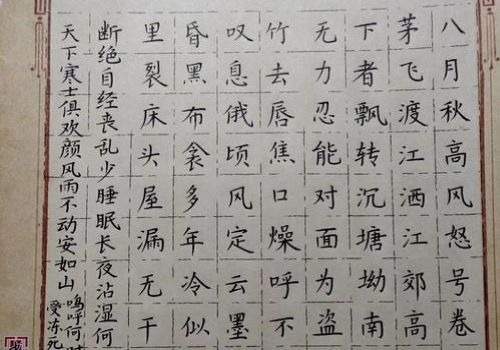 八月秋高风怒号卷
茅飞渡江洒江郊高
下者飘转沉塘坳南
无力忍能对面为盗
竹去唇焦口燥呼不
叹息俄顷风定云墨
昏黑布衾多年冷似
里裂床头屋漏无干
断绝自经丧乱少睡眠长夜沾湿何
天下寒士俱欢颜风雨不动安如山
呜呼何
受冻死